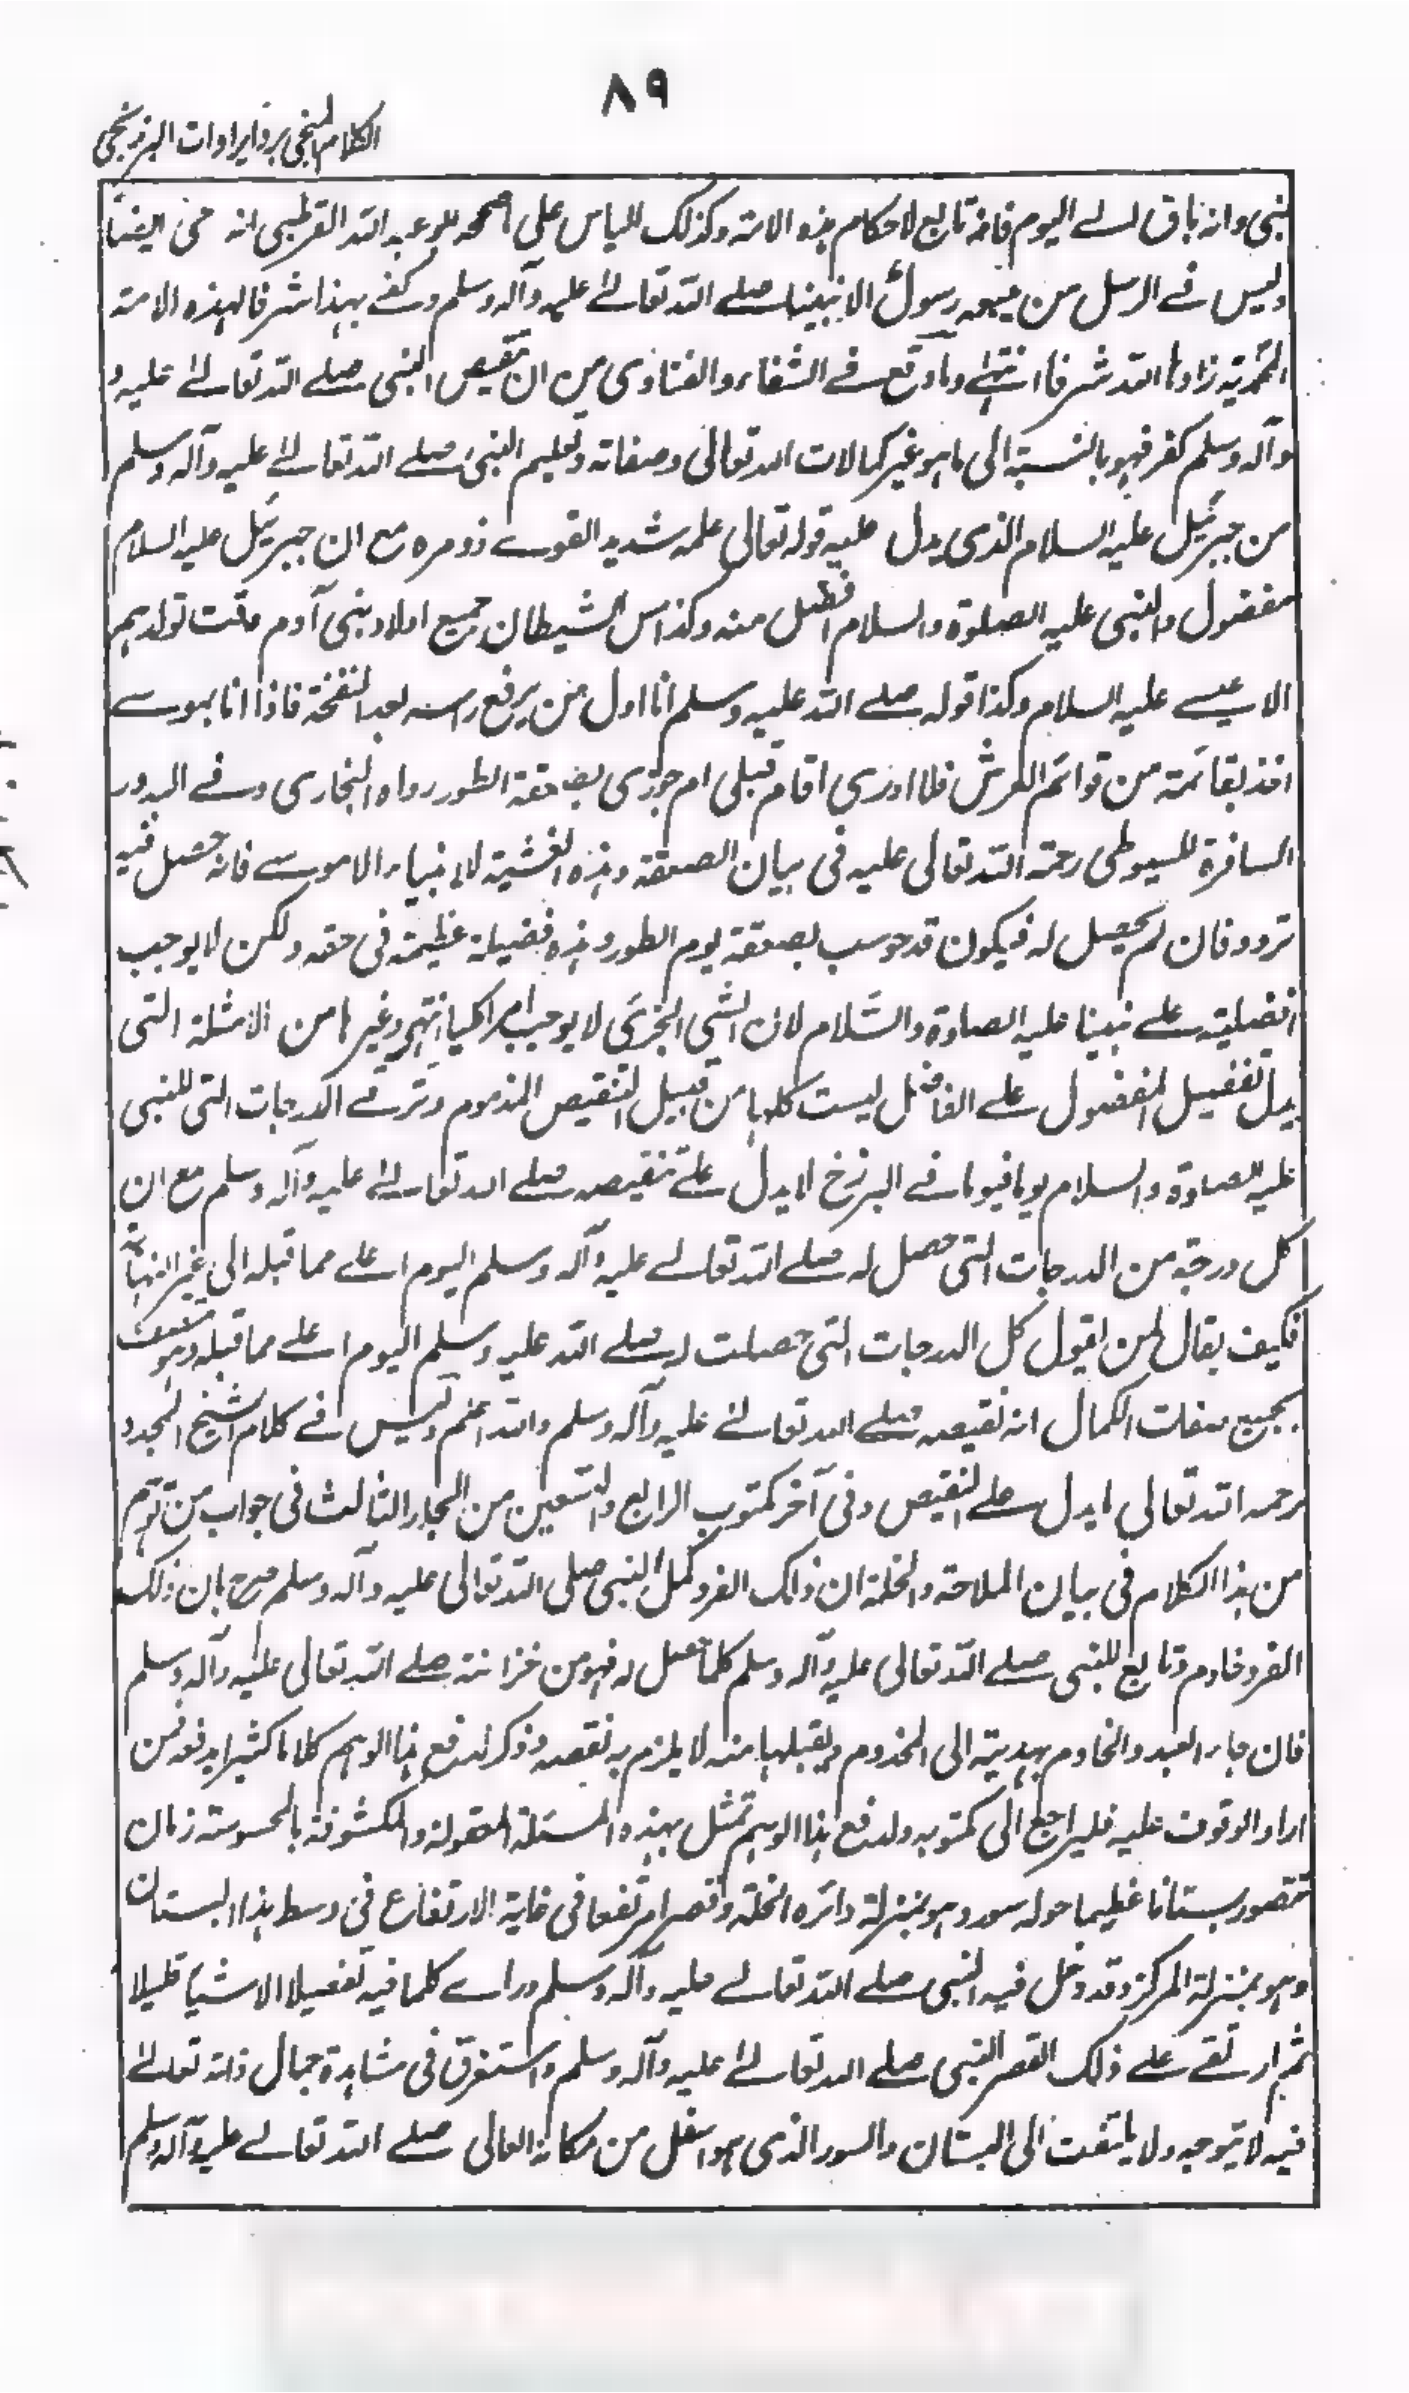 ٨٩
الكلام المنجي برد ايرادات البرزنجي
نبي وانه باق الے اليوم فانه تابع لاحكام هذه الامة وكذلك الياس علي ما صححه ابو عبد الله القرطبي انه حي ايضاً
وليس فے الرسل من يتبعه رسول الا نبينا صلے الله تعالےٰ عليه وآله وسلم وكفے بهذا شرفا لهذه الامة
المحمدية زادها الله شرفا انتهٰے وما وقع فے الشفاء والفتاوى من ان تنقيص النبى صلے الله تعالےٰ عليه و
وآله وسلم كفر فهو بالنسبة الى ما هو غير كمالات الله تعالى وصفاته وتعليم النبى صلے الله تعالےٰ عليه وآله وسلم
من جبرئيل عليه السلام الذى يدل عليه قوله تعالى علمه شديد القوے ذو مرة مع ان جبرئيل عليه السلام
مفضول والنبى عليه الصلوة والسلام افضل منه وكذا مس الشيطان جميع اولاد بنى آدم وقت تولدهم
الا عيسے عليه السلام وكذا قوله صلے الله عليه وسلم انا اول من يرفع راسه بعد النفخة فاذا انا بموسے
اخذ بقائمة من قوائم العرش فلا ادرى اقام قبلى ام جوزى بصعقة الطور رواه البخارى وفے البدور
السافرة للسيوطى رحمة الله تعالى عليه فى بيان الصعقة وهذه الغشية للانبياء الا موسے فانه حصل فيه
تردد فان لم يحصل له فيكون قد حوسب بصعقة يوم الطور وهذه فضيلة عظيمة فى حقه ولكن لا يوجب
افضليته علے نبينا عليه الصلوة والسَّلام لان الشئ الجزئى لا يوجب امرا كليا انتهى وغيرها من الامثلة التى
يدل تفضيل المفضول علے الفاضل ليست كلها من قبيل التنقيص المذموم وترقے الدرجات التى للنبى
عليه الصلوة والسلام يوما فيوما فے البرزخ لا يدل علے تنقيصه صلے الله تعالےٰ عليه وآله وسلم مع ان
كل درجة من الدرجات التى حصل له صلے الله تعالے عليه وآله وسلم اليوم اعلے مما قبله الى غير النهاية
فكيف يقال لمن يقول كل الدرجات التى حصلت له صلے الله عليه وسلم اليوم اعلے مما قبله وهو متصف
بجميع صفات الكمال انه نقيصه صلے الله تعالےٰ عليه وآله وسلم والله اعلم وليس فے كلام الشيخ المجدد
رحمه الله تعالي ما يدل علے النقيص وفى آخر مكتوب الرابع والتسعين من المجلد الثالث فى جواب من توهم
من هذا الكلام فى بيان الملاحة والخلة ان ذلك الفرد كمل النبى صلى الله تعالى عليه وآله وسلم صرح بان ذلك
الفرد خادم وتابع للنبى صلے الله تعالى عليه وآله وسلم كلما حصل له فهو من خزانته صلے الله تعالى عليه وآله وسلم
فان جاء العبد والخادم بهدية الى المخدوم ويقبلها منه لا يلزم به نقصه وذكر لدفع هذا الوهم كلاما كثيرا يدفعه فمن
اراد الوقوف عليه فليراجع الى مكتوبه ولدفع هذا الوهم تمثل بهذه المسئلة المعقولة والمكشوفة بالمحسوسة زمان
تتصور بستانا عظيما حوله سور وهو بمنزلة دائرة الخلة وقصرا مرتفعا فى غاية الارتفاع فى وسط هذا البستان
وهو بمنزلة المركز وقد دخل فيه النبى صلے الله تعالے عليه وآله وسلم وراے كلما فيه تفصيلا الا شيئا قليلا
ثم ارتقے علے ذلك القصر النبى صلے الله تعالےٰ عليه وآله وسلم واستغرق فى مشاهدة جمال ذاته تعالےٰ
فيه لا يتوجه ولا يلتفت الى البستان والسور الذى هو اسفل من مكانه العالى صلے الله تعالے عليه وآله وسلم